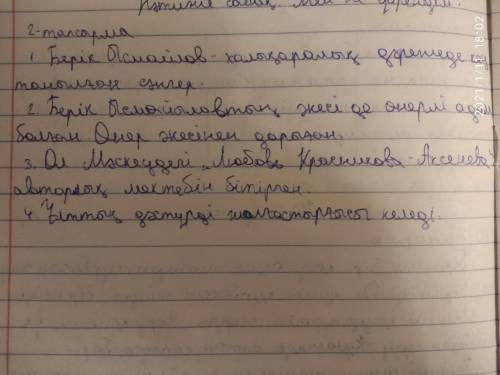 2-тапсырма
1. Берік Ысмайлов - халықаралық дәрежеде
танылған сәнгер.
2. Берік Ысмойыловтың әкесі де өнерлі адам
болған Өнер әкесінен дарыған.
3. Ол Мәскеудегі „Любовь Красникова-Аксенева"
авторлық мектебін бітірген.
4. Ұлттық дәтүрді жалғастырғысы келеді.
18:02